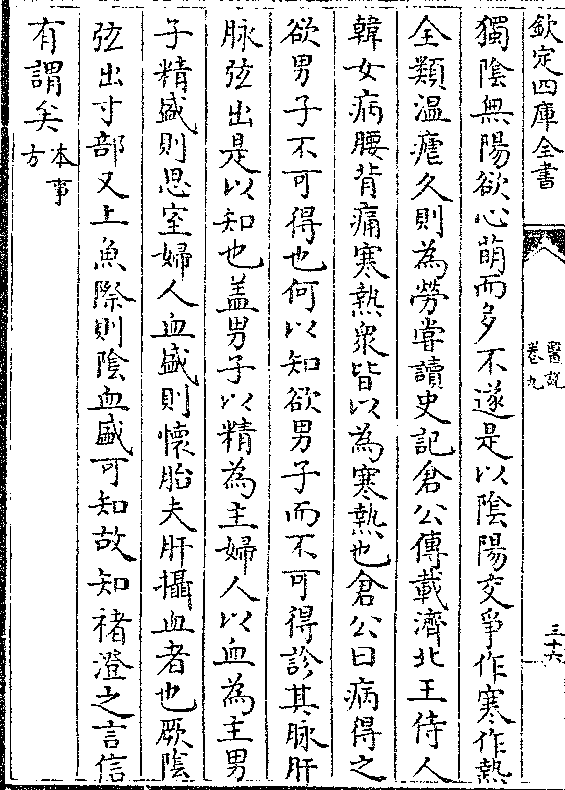 欽定四庫全書
醫說
卷九
三十六
獨陰無陽欲心萌而多不遂是以陰陽交爭作寒作熱
全類溫瘧久則為勞嘗讀史記倉公傳載濟北王侍人
韓女病腰背痛寒熱衆皆以為寒熱也倉公曰病得之
欲男子不可得也何以知欲男子而不可得診其脉肝
脉弦出是以知也盖男子以精為主婦人以血為主男
子精盛則思室婦人血盛則懷胎夫肝攝血者也厥陰
弦出寸部又上魚際則陰血盛可知故知褚澄之言信
有謂矣本事
方